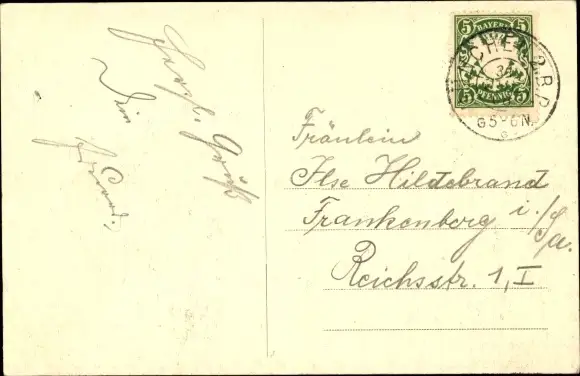 Herzl. Gruß
Dein
5 BAYERN 5
5 PFENNIG 5
MÜNCHEN 2 B.P.
6 5-6 N.
Fräulein
Ilse Hildebrand
Frankenberg i./Sa.
Reichsstr. 1, I